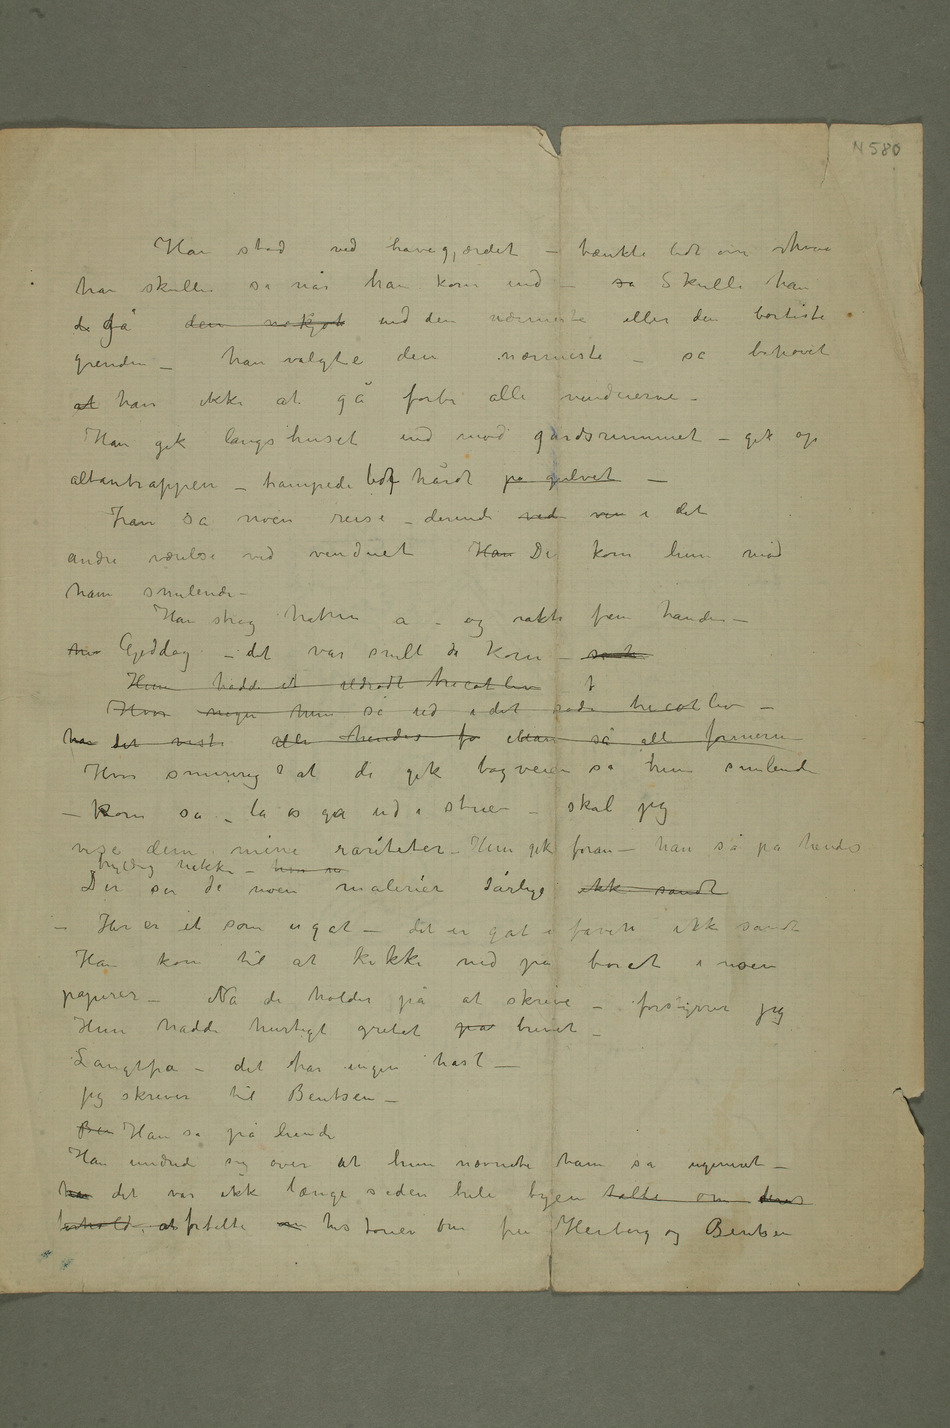 N 580
Han stod ved havegjærdet – tænkte lidt over hva
han skulle sa når han kom ind – sa Skulle han
de gå den nokgot ind den nærmeste eller den bortiste
grenden – han valgte den nærmeste – sa behøvet
at han ikke at gå forbi alle vinduerne –
Han gik langs huset ind mod gårdsrummet – gik op
altantrappen – trampede lidt hårdt på gulvet –
Han sa noen reise – derinde ved vin i det
andre værelse ved vinduet Han De kom hun mod
ham smilende –
Han strøg hatten a – og rakte frem handen –
Goddag – det var snilt de kom –
Hun hadde et ildrødt tricotliv
Hvor nogen hun så ud i det røde tricotliv –
han det viste alle hendes fo så alle formerne –
Hvor snurrig at de gik bagveien sa hun smilende
– Kom sa – la os ga ud i stuen – skal jeg
vise dem mine rariteter – Hun gik foran – han så på hendes
fyldig nakke –
Der ser de noen malerier dårlige ikke sandt
– Her er et som er gåt – det er gåt i farven ikke sandt
Han kom til at kikke ned på boret i noen
papirer – Nå de holder på at skrive – forstyrrer jeg
Hun hadde hurtigt grebet på brevet –
Langtfra – det har ingen hast –
jeg skriver til Bentsen –
Ben Han sa på hende
Han undrede sig over at hun nævnte ham sa ugeneret –
han det var ikke længe siden hele byen talte om deres
forhold, at fortalte historier om fru Heiberg og Bentsen